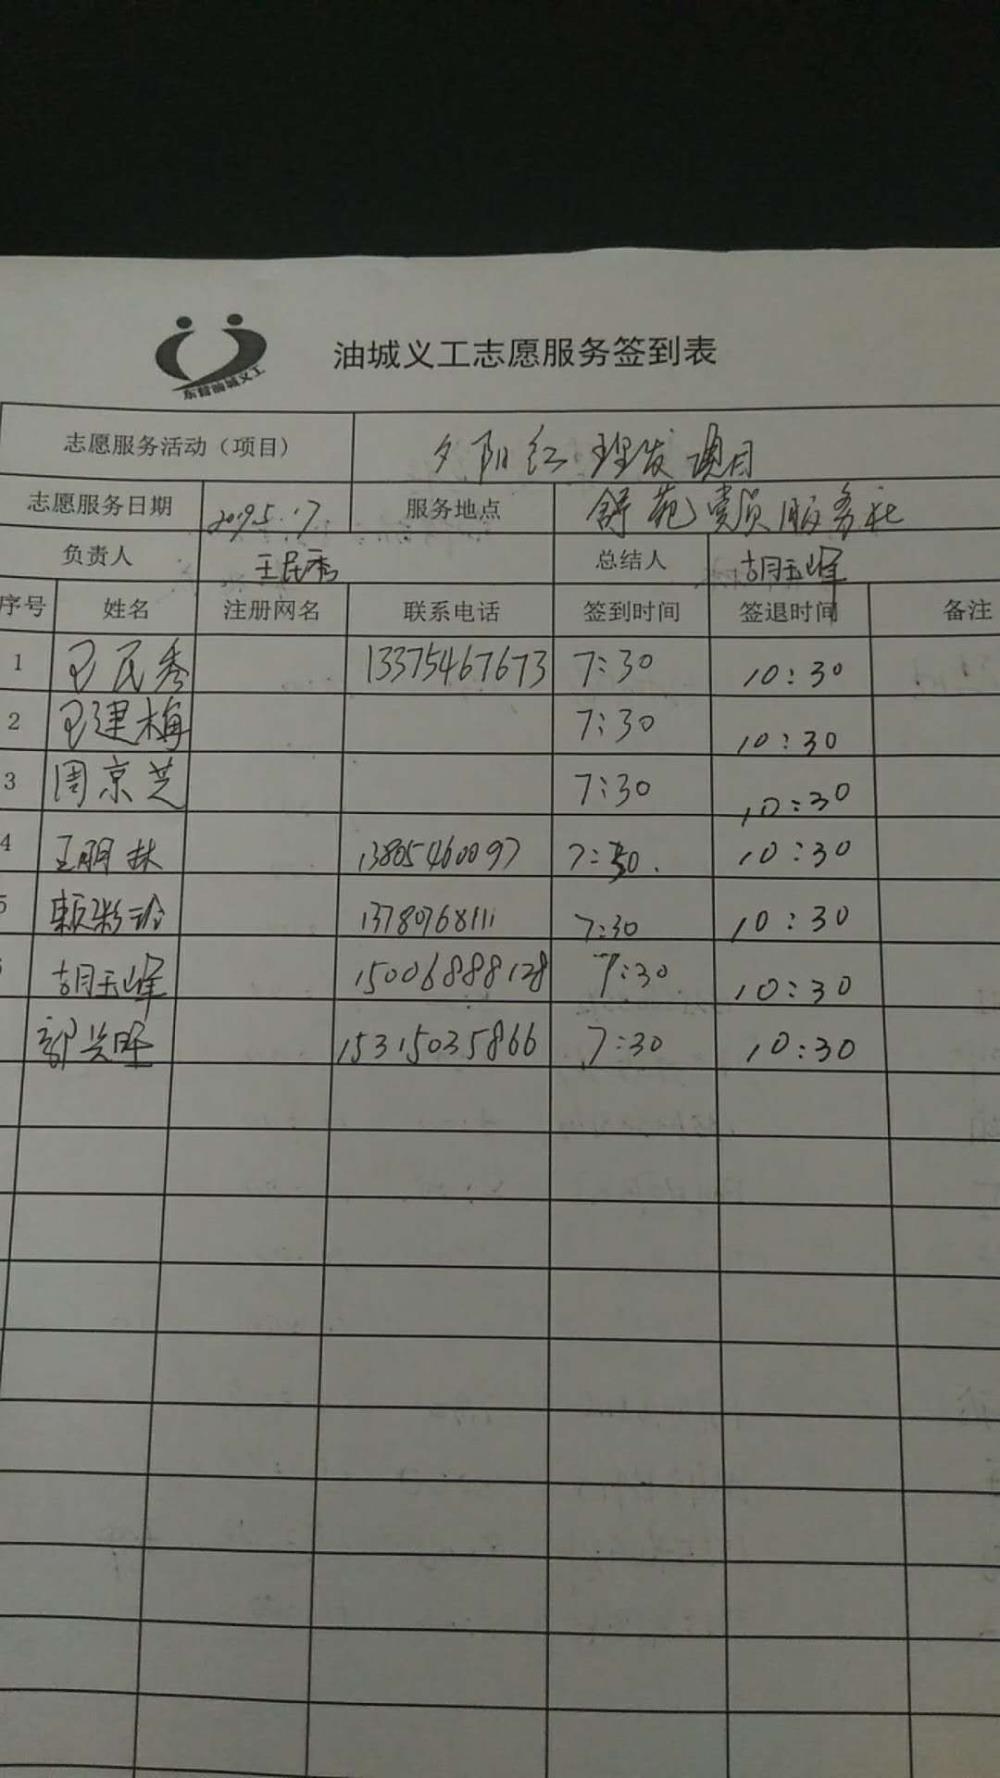 东营油城义工
油城义工志愿服务签到表
志愿服务活动（项目） 夕阳红理发项目
志愿服务日期 2019.5.17 服务地点 舒苑党员服务社
负责人 王民秀 总结人 胡玉峰
序号 姓名 注册网名 联系电话 签到时间 签退时间 备注
1 王民秀 13375467673 7:30 10:30
2 王建梅 7:30 10:30
3 周京芝 7:30 10:30
4 王明林 13805460097 7:30. 10:30
5 赖彩玲 13780768111 7:30 10:30
胡玉峰 15006888128 7:30 10:30
郭兴旺 15315035866 7:30 10:30